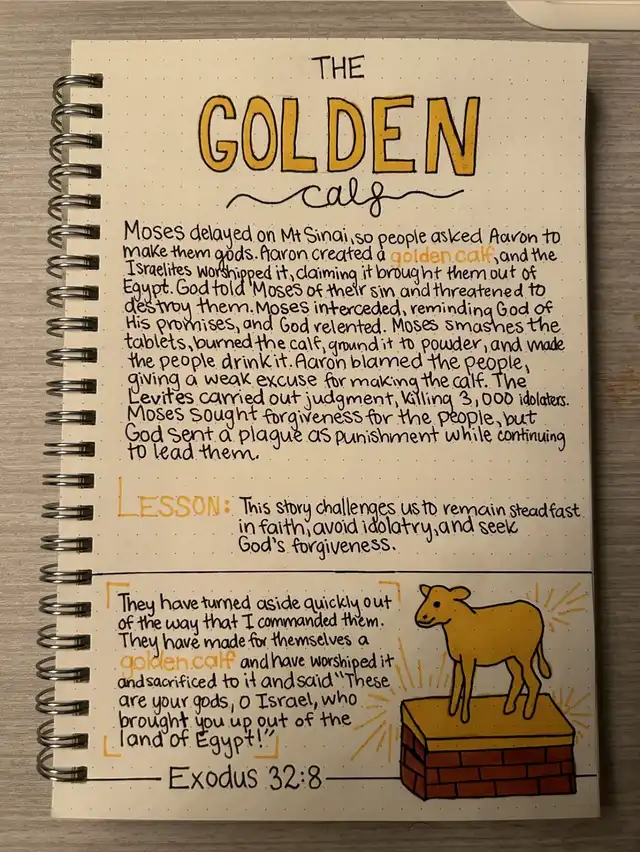 THE
GOLDEN
calf
Moses delayed on Mt Sinai, so people asked Aaron to
make them gods. Aaron created a golden calf, and the
Israelites worshipped it, claiming it brought them out of
Egypt. God told Moses of their sin and threatened to
destroy them. Moses interceded, reminding God of
His promises, and God relented. Moses smashes the
tablets, burned the calf, ground it to powder, and made
the people drink it. Aaron blamed the people,
giving a weak excuse for making the calf. The
Levites carried out judgment, killing 3,000 idolaters.
Moses sought forgiveness for the people, but
God sent a plague as punishment while continuing
to lead them.
LESSON: This story challenges us to remain steadfast
in faith, avoid idolatry, and seek
God's forgiveness.
They have turned aside quickly out
of the way that I commanded them.
They have made for themselves a
golden calf and have worshiped it
and sacrificed to it and said "These
are your gods, O Israel, who
brought you up out of the
land of Egypt!"
Exodus 32:8